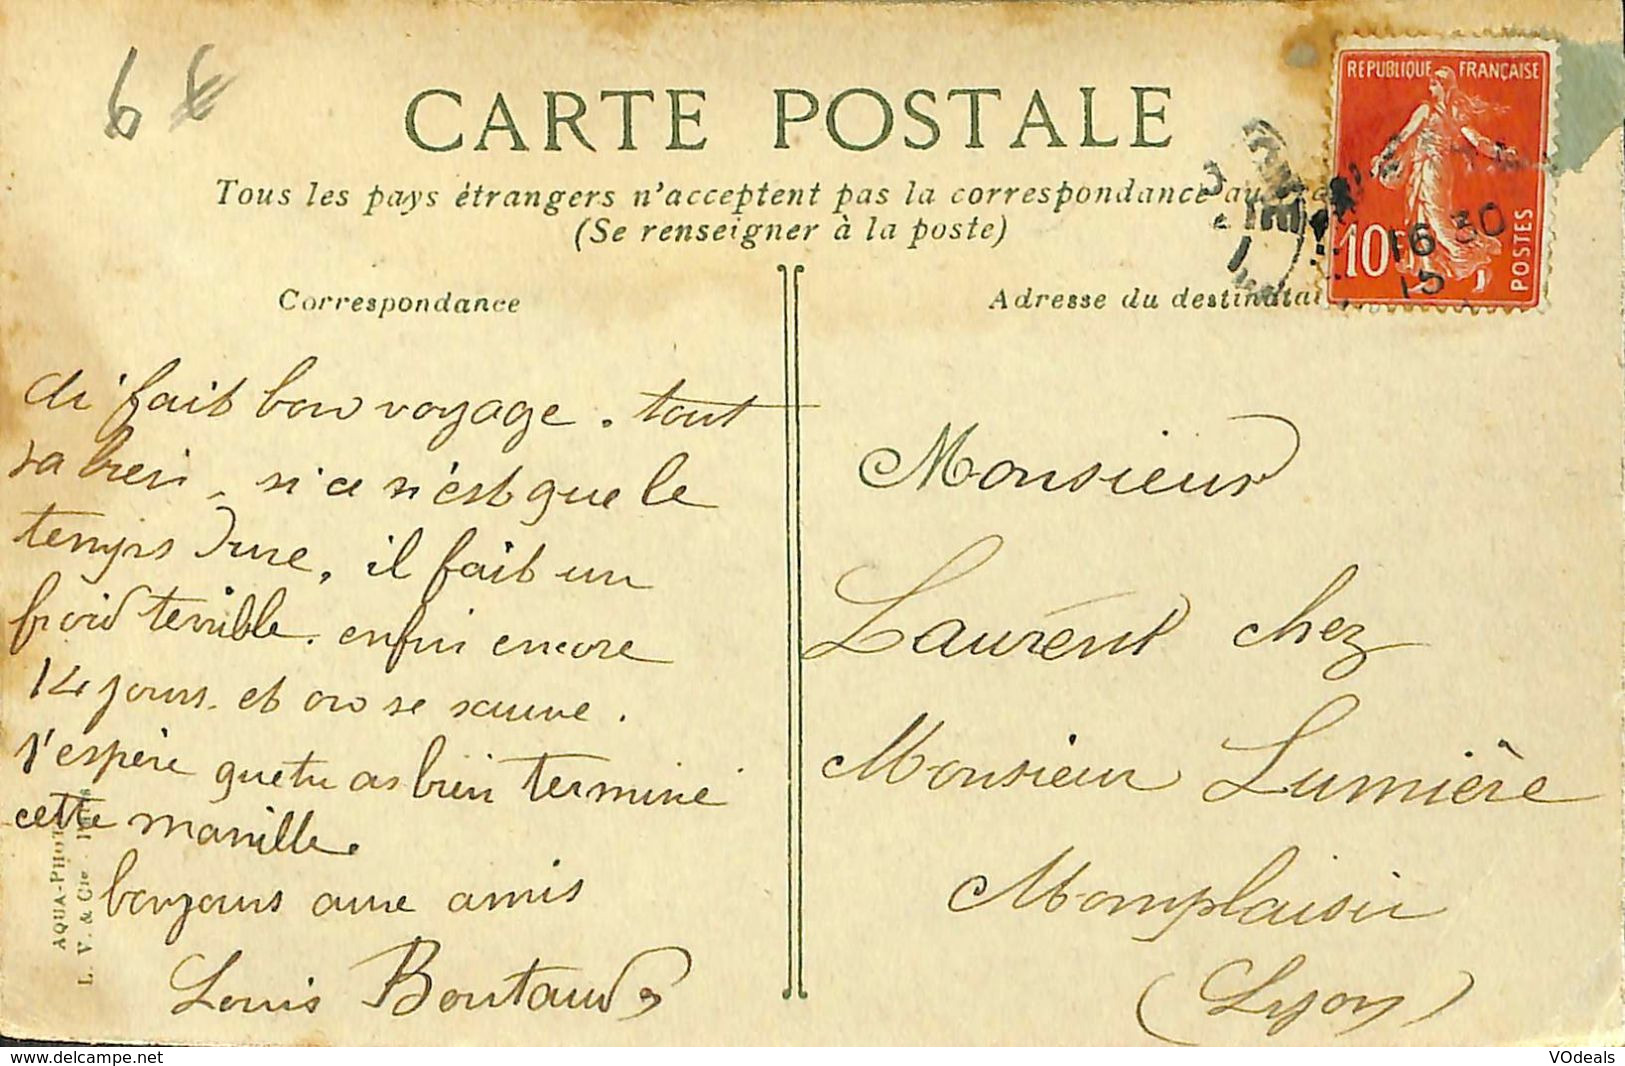 6 €
CARTE POSTALE
Tous les pays étrangers n'acceptent pas la correspondance au
(Se renseigner à la poste)
Correspondance
Adresse du destinatai
REPUBLIQUE FRANÇAISE
10c
POSTES
16 30
15
ai fait bon voyage. tout
va bien, si ce n'est que le
temps dure, il fait un
froid terrible. enfin encore
14 jours. et on se sauve.
J'espère que tu as bien terminé
cette manille.
bonjours aux amis
Louis Boutaud
Monsieur
Laurent chez
Monsieur Lumière
Momplaisir
(Lyon)
AQUA-PHOT
L. V. & Cie
© VOdeals